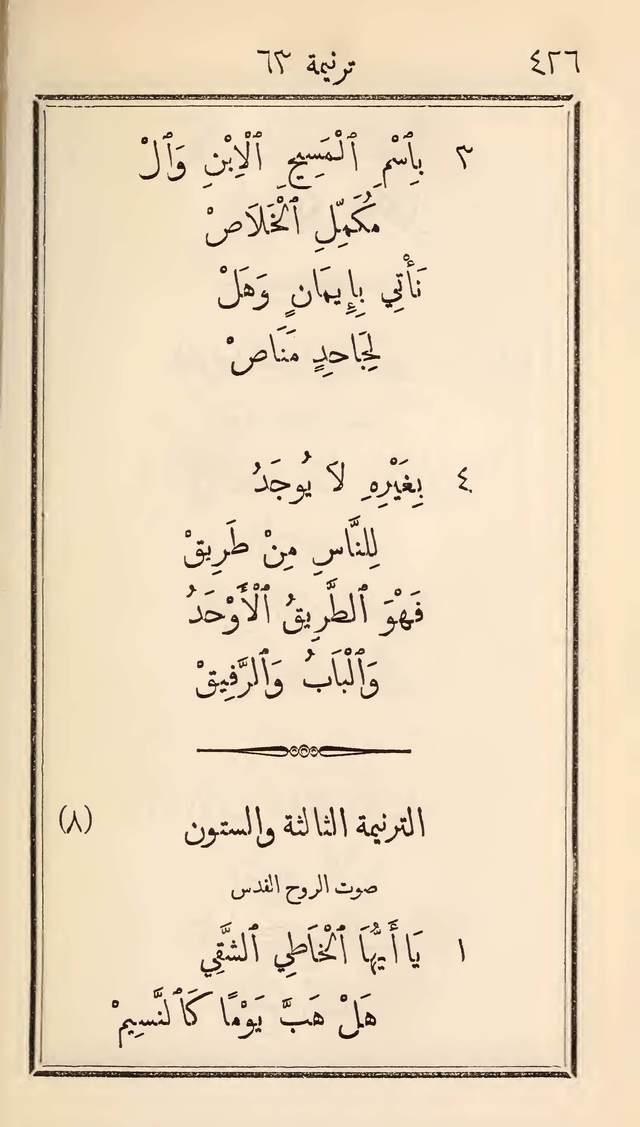 ٤٢٦ ترنيمة ٦٣
٣ بِٱسْمِ ٱلْمَسِيحِ ٱلْاِبْنِ وَٱلْ
مُكَمِّلِ ٱلْخَلَاصْ
نَأْتِي بِإِيمَانٍ وَهَلْ
لِجَاحِدٍ مَنَاصْ
٤ بِغَيْرِهِ لَا يُوجَدُ
لِلنَّاسِ مِنْ طَرِيقْ
فَهْوَ ٱلطَّرِيقُ ٱلْأَوْحَدُ
وَٱلْبَابُ وَٱلرَّفِيقْ
الترنيمة الثالثة والستون (٨)
صوت الروح القدس
١ يَا أَيُّهَا ٱلْخَاطِي ٱلشَّقِي
هَلْ هَبَّ يَوْمًا كَٱلنَّسِيمْ